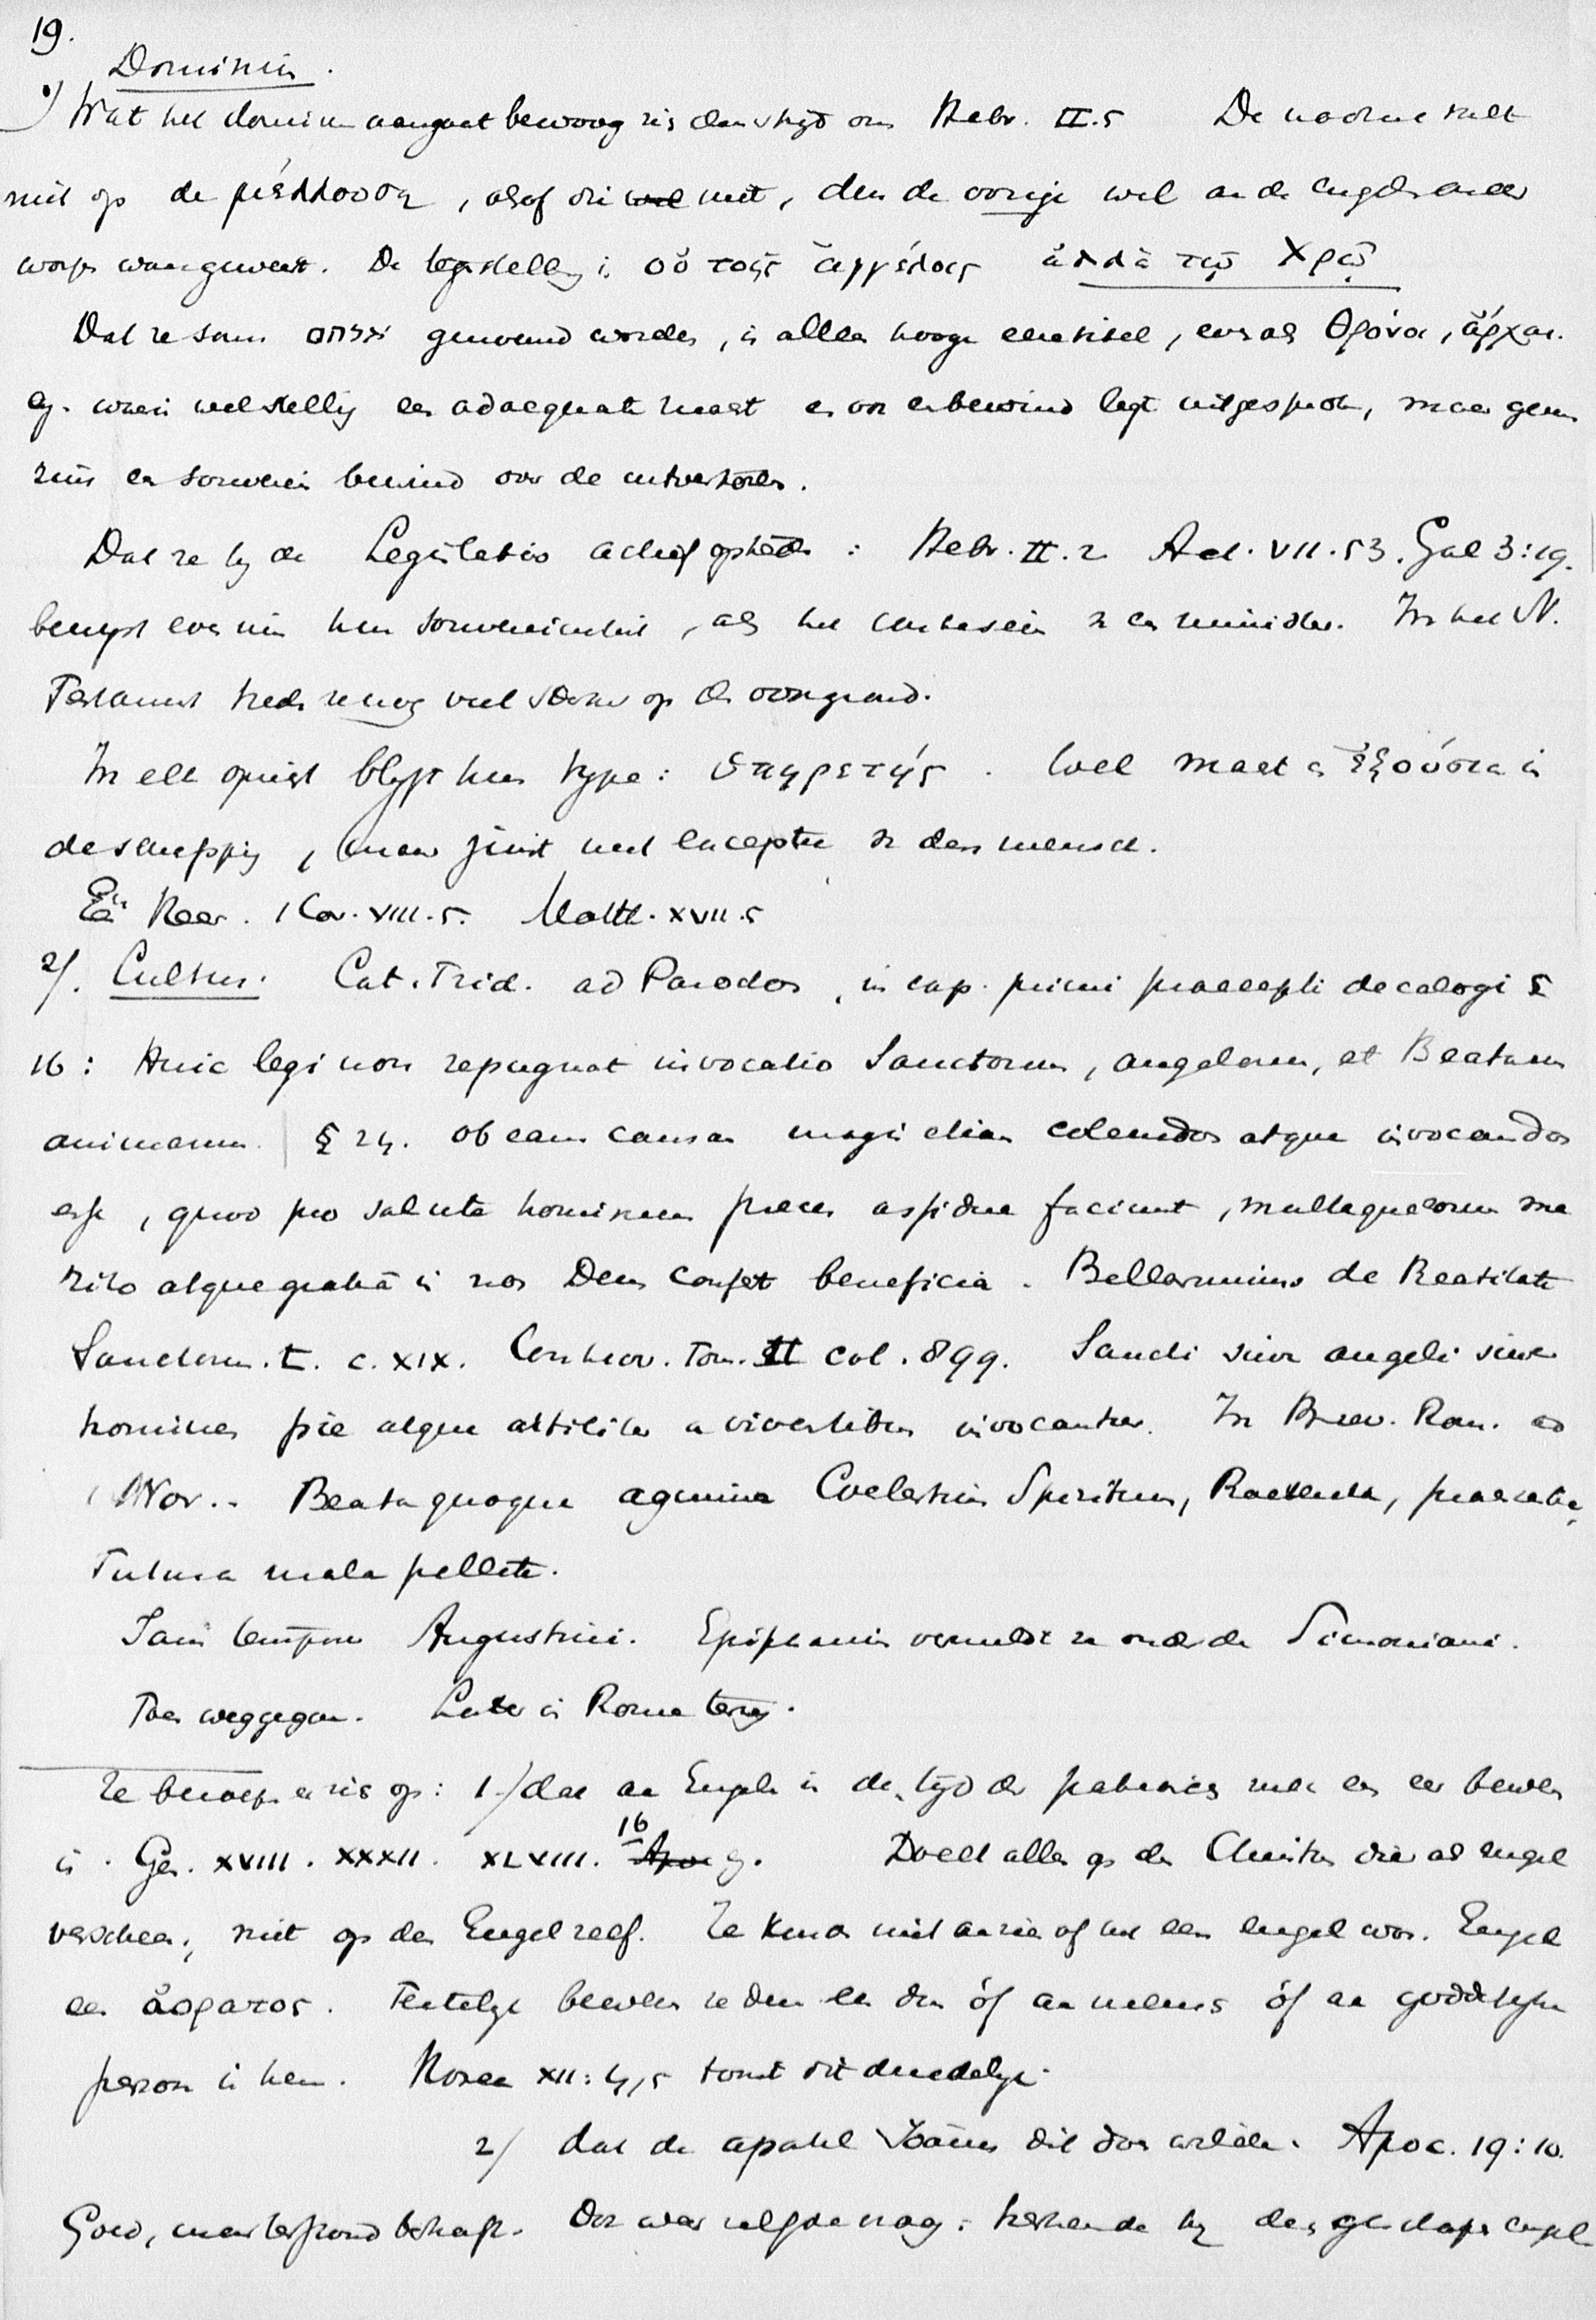 19.
Dominium.
1/ Wat het dominium aangaat beroept zich dan altijd om Hebr. II.5 De nadruk valt
niet op de μέλλουσα, alsof die wel niet, den de vorige wel aan de engelen onder
worpen ware geweest. De tegenstelling is οὐ τοῖς ἀγγέλοις ἀλλὰ τῷ Χρῷ
Dat ze soms genoemd worden, is alleen hooge eeretitel, even als θρόνοι, ἄρχαι.
Er wordt wel stellig een adaequate macht en bewind uitgesproken, maar geen
zins een souverein bewind over de uitverkoren.
Dat ze bij de Legislatio actief optreden: Hebr. II.2 Act. VII.53. Gal 3:19.
bewijst even min hun souvereiniteit, als het van een minister. In het N.
Testament treden ze nog veel sterker op den voorgrond.
In elk opzigt blijft hun type: ὑπηρετής. Wel macht en ἐξούσια in
de schepping, maar juist met exceptie van den mensch.
Eén Heer. 1 Cor. VIII.5. Matth. XVII.5
2/. Cultus. Cat. Trid. ad Parochos, in cap. primi praecepti decalogi §
16: Huic legi non repugnat invocatio Sanctorum, angelorum, et Beatarum
animarum. § 24. ob eam causam magis etiam colendos atque invocandos
esse, quod pro salute hominum preces assidue faciunt, multaque eorum me
rito atque gratiâ in nos Deus confert beneficia. Bellarminus de Beatitate
Sanctorum. I. c. XIX. Controv. Tom. II col. 899. Sancti sive angeli sive
homines pie atque utiliter a viventibus invocantur. In Brev. Rom. ad
1 Nov.. Beata quoque agmina Coelestium Spirituum, Praeterita, praesentia,
Futura mala pellite.
Jam tempore Augustini. Epiphanius vermeldt ze onder de Simoniani.
Toen weggegaan. Later in Rome terug.
Ze beroepen zich op: 1/ dat aan Engelen in de tijd der patriarchen eer bewezen
is. Gen. XVIII. XXXII. XLVIII. 16 Apoc. Doelt alles op den Christus die als engel
verscheen, niet op den Engel zelf. Ze konden niet aanzien of het een engel was. Engel
een ἀόρατος. Feitelijk bewezen ze dus een dan óf aan mensch óf aan goddelijke
persoon in hem. Hosea XII: 4,5 toont dit duidelijk.
2/ dat de apostel Joännes dit doen wilde. Apoc. 19:10.
Goed, maar terstond bestraft.